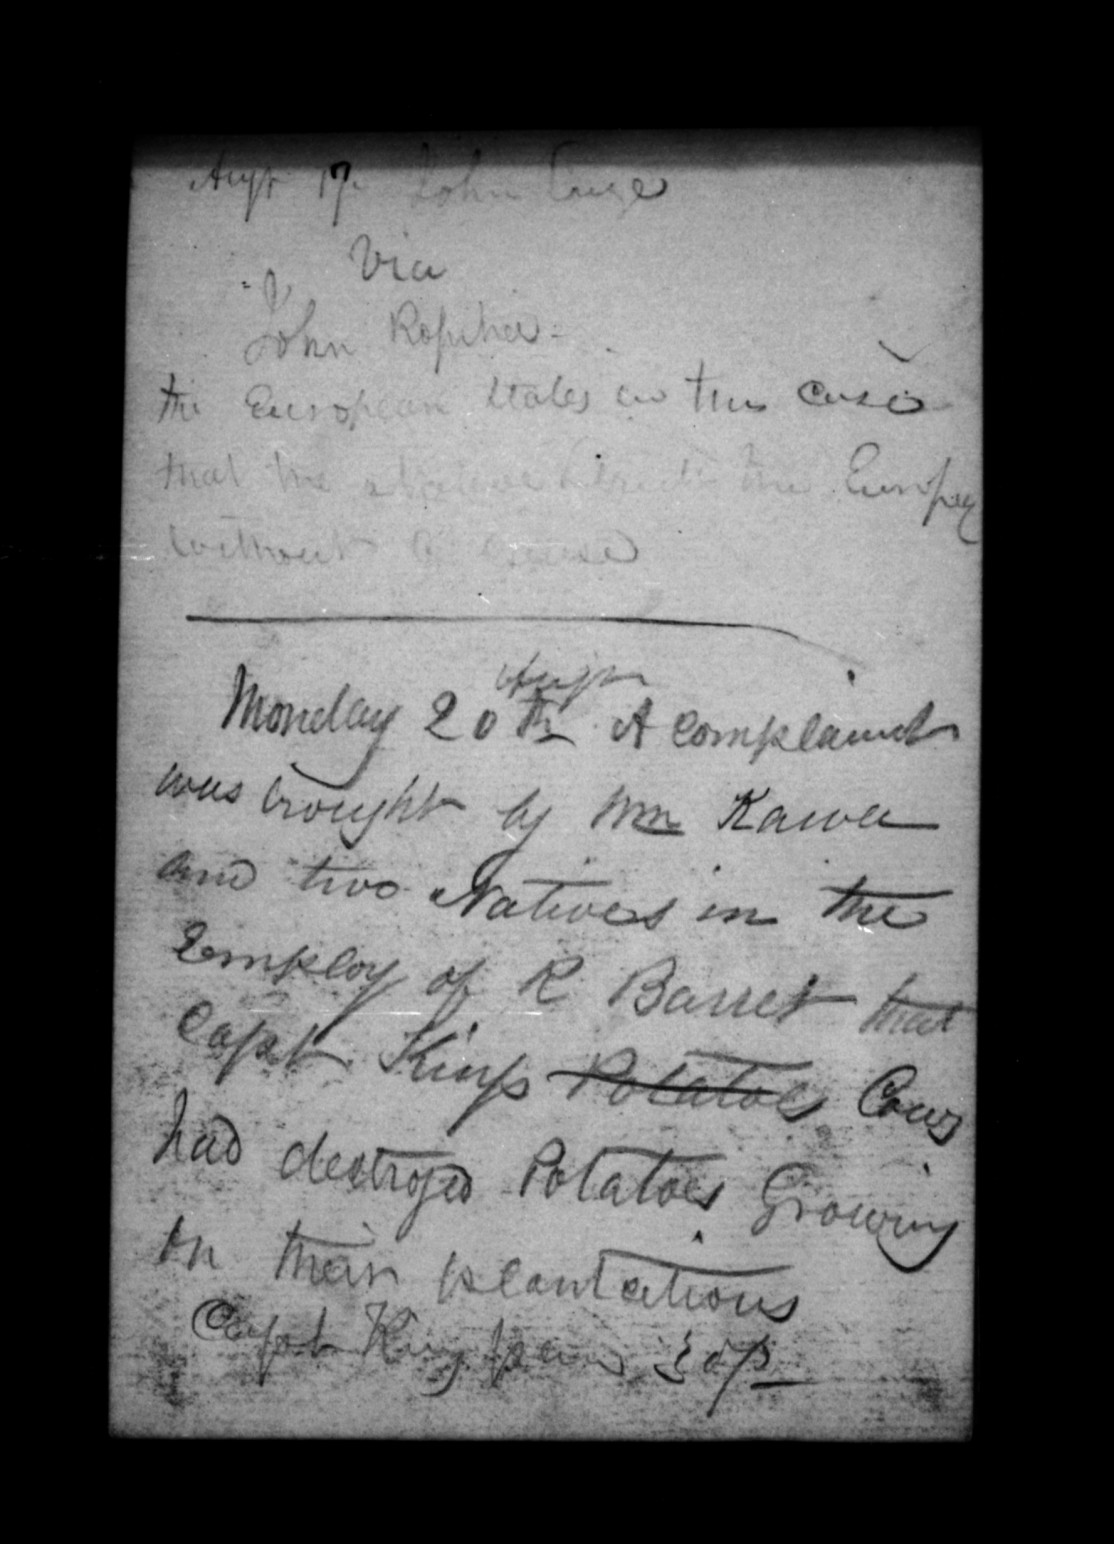 Augt 17. John
Via
John Ropiha
the European States in this case
that the the Europ
without a cause
Augt
Monday 20th A complaint
was brought by Wm Kawa
and two Natives in the
Employ of R Barret that
Capt Kings Potatoes Cows
had destroyed Potatoes Growing
on their plantations
Capt King 30/-